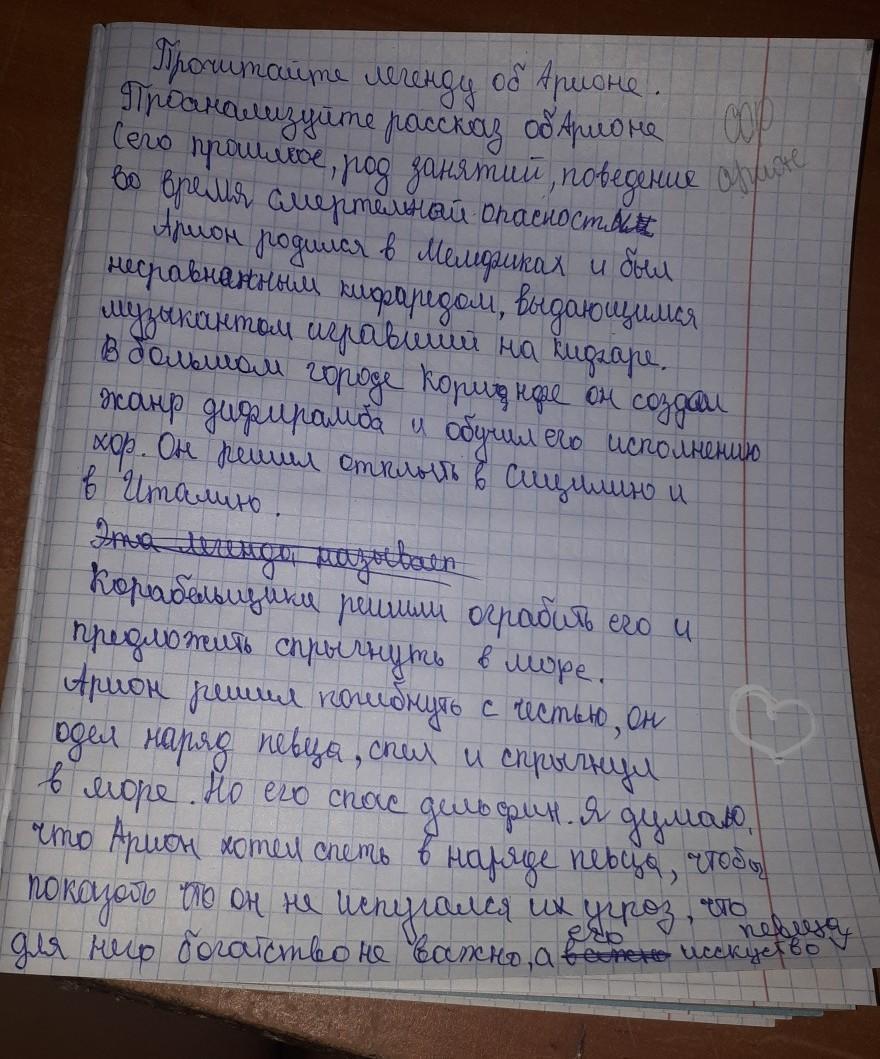 Прочитайте легенду об Арионе.
Проанализуйте рассказ об Арионе
(его прошлое, род занятий, поведение
во время смертельный опасности
Арион родился в Мемфиках и был
несравнанным кифаредом, выдающимся
музыкантом игравший на кифаре.
В большом городе Коринфе он создал
жанр дифирамба и обучил его исполнению
хор. Он решил отплыть в Сицилию и
в Италию.
Эта легенда называет
Корабельщики решили ограбить его и
предложить спрыгнуть в море.
Арион решил погибнуть с честью, он
одел наряд певца, спел и спрыгнул
в море. Но его спас дельфин. Я думаю,
что Арион хотел спеть в наряде певца, чтобы
показать что он не испугался их угроз, что
для него богатство не важно, а его исскуство певца
арионе